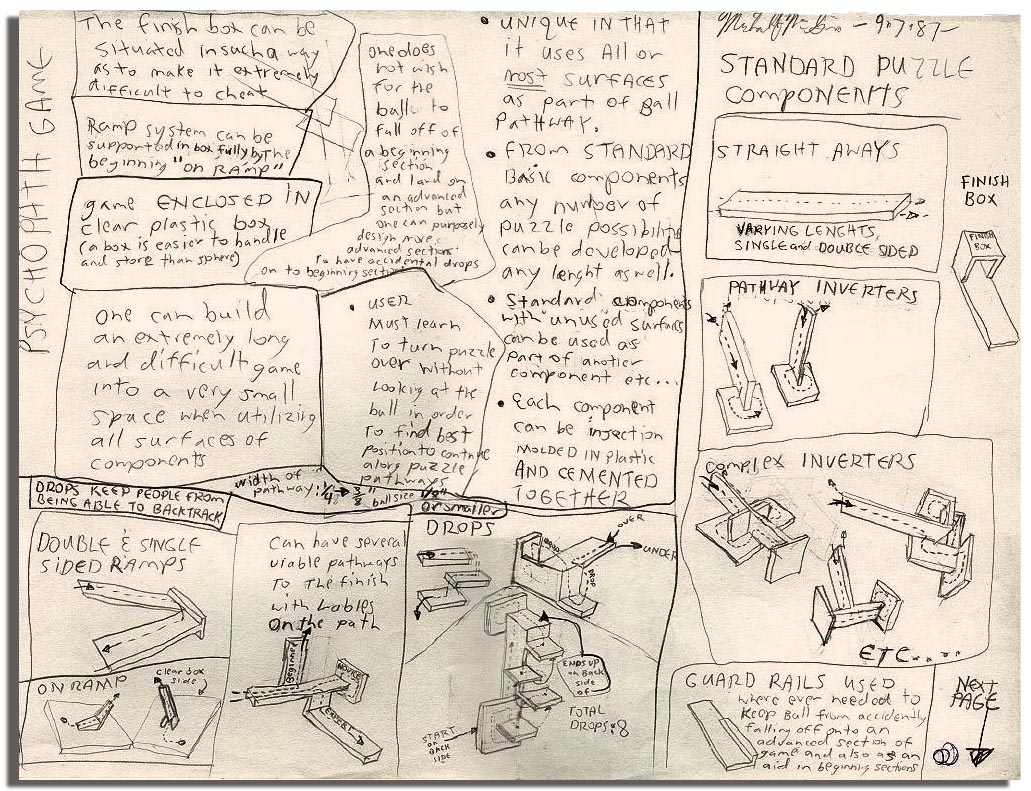 PSYCHOPATH GAME
The finish box can be
situated in such a way
as to make it extremely
difficult to cheat
Ramp system can be
supported in box fully by the
beginning "ON RAMP"
game ENCLOSED IN
clear plastic box
(a box is easier to handle
and store than sphere)
one does
not wish
for the
ball to
fall off of
a beginning
section
and land on
an advanced
section but
one can purposely
design more
advanced sections
To have accidental drops
on to beginning section
one can build
an extremely long
and difficult game
into a very small
space when utilizing
all surfaces of
components
• USER
Must learn
To turn puzzle
over without
Looking at the
ball in order
To find best
position to continue
along puzzle
pathways
width of
pathway: 1/4 → 3/8"
ball size 1/8"
or smaller
• UNIQUE IN THAT
it uses All or
most surfaces
as part of Ball
PATHWAY.
• FROM STANDARD
Basic components
any number of
puzzle possibiliti
can be developed
any lenght as well.
• Standard components
with unused surfaces
can be used as
part of another
component etc...
• Each component
can be injection
MOLDED IN plastic
AND CEMENTED
TOGETHER
9-7-87
STANDARD PUZZLE
COMPONENTS
STRAIGHT AWAYS
VARYING LENGHTS,
SINGLE and DOUBLE SIDED
FINISH
BOX
FINISH
BOX
PATHWAY INVERTERS
COMPLEX INVERTERS
ETC....
GUARD RAILS USED
where ever needed to
Keep Ball from accidently
falling off onto an
advanced section of
game and also as an
aid in beginning sections
NEXT
PAGE
DROPS KEEP PEOPLE FROM
BEING ABLE TO BACKTRACK
DOUBLE & SINGLE
SIDED RAMPS
ON RAMP
clear box
side
Can have several
viable pathways
To The finish
with Lables
on the path
BEGINNER
NOVICE
EXPERT
DROPS
OVER
UNDER
DROP
DROP
ENDS UP
on Back
side of
TOTAL
DROPS: 8
START
ON BACK
SIDE